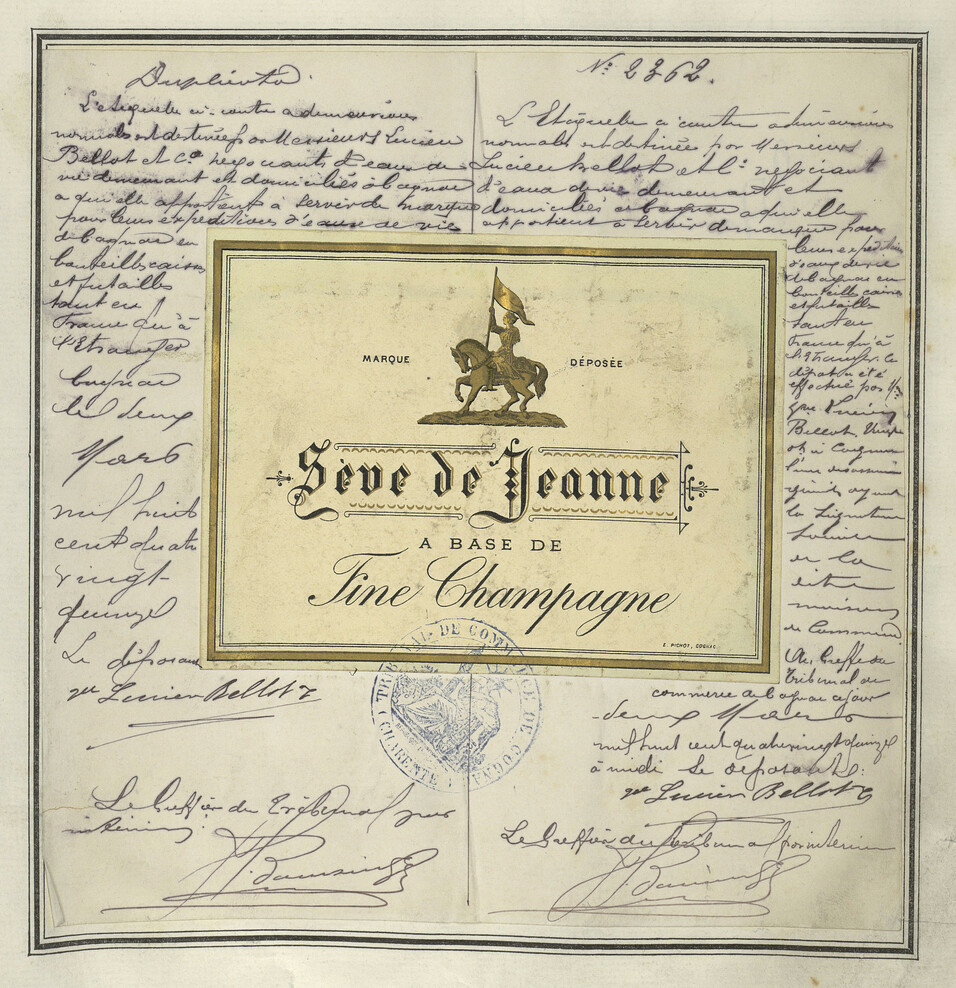 Duplicata.
L'étiquette ci-contre a dimensions
normales est destinée par Messieurs Lucien
Bellot et Cie négociants d'eaux de
vie demeurant et domiciliés à Cognac
a qu'elle appartient à servir de marque
pour leurs expéditions d'eaux de vie
de Cognac en
bouteilles caisses
et futailles
tant en
France qu'à
l'Etranger
Cognac
le deux
Mars
mil huit
cent quatre
vingt
quinze
Le déposant
Lucien Bellot
Le Greffier du Tribunal par
intérim:
No 2362.
L'Etiquette ci contre a dimensions
normales est destinée par Messieurs
Lucien Bellot et Cie négociant
d'eaux de vie demeurant et
domiciliés à Cognac a qu'elle
appartient à servir de marque pour
leurs expéditions
d'eaux de vie
de Cognac en
bouteilles caisses
et futailles
tant en
France qu'à
l'Etranger. Le
dépôt a été
effectué par Mr
Lucien
Bellot
à Cognac
l'un
ayant
la signature
en la
dite
maison
de Commerce
Au Greffe du
Tribunal de
commerce de Cognac ce jour
deux Mars
mil huit cent quatre vingt quinze
à midi Le déposant:
Lucien Bellot
Le Greffier du tribunal par intérim
MARQUE DÉPOSÉE
Sève de Jeanne
A BASE DE
Fine Champagne
E. PICHOT, COGNAC
TRIBUNAL DE COMMERCE DE COGNAC
CHARENTE